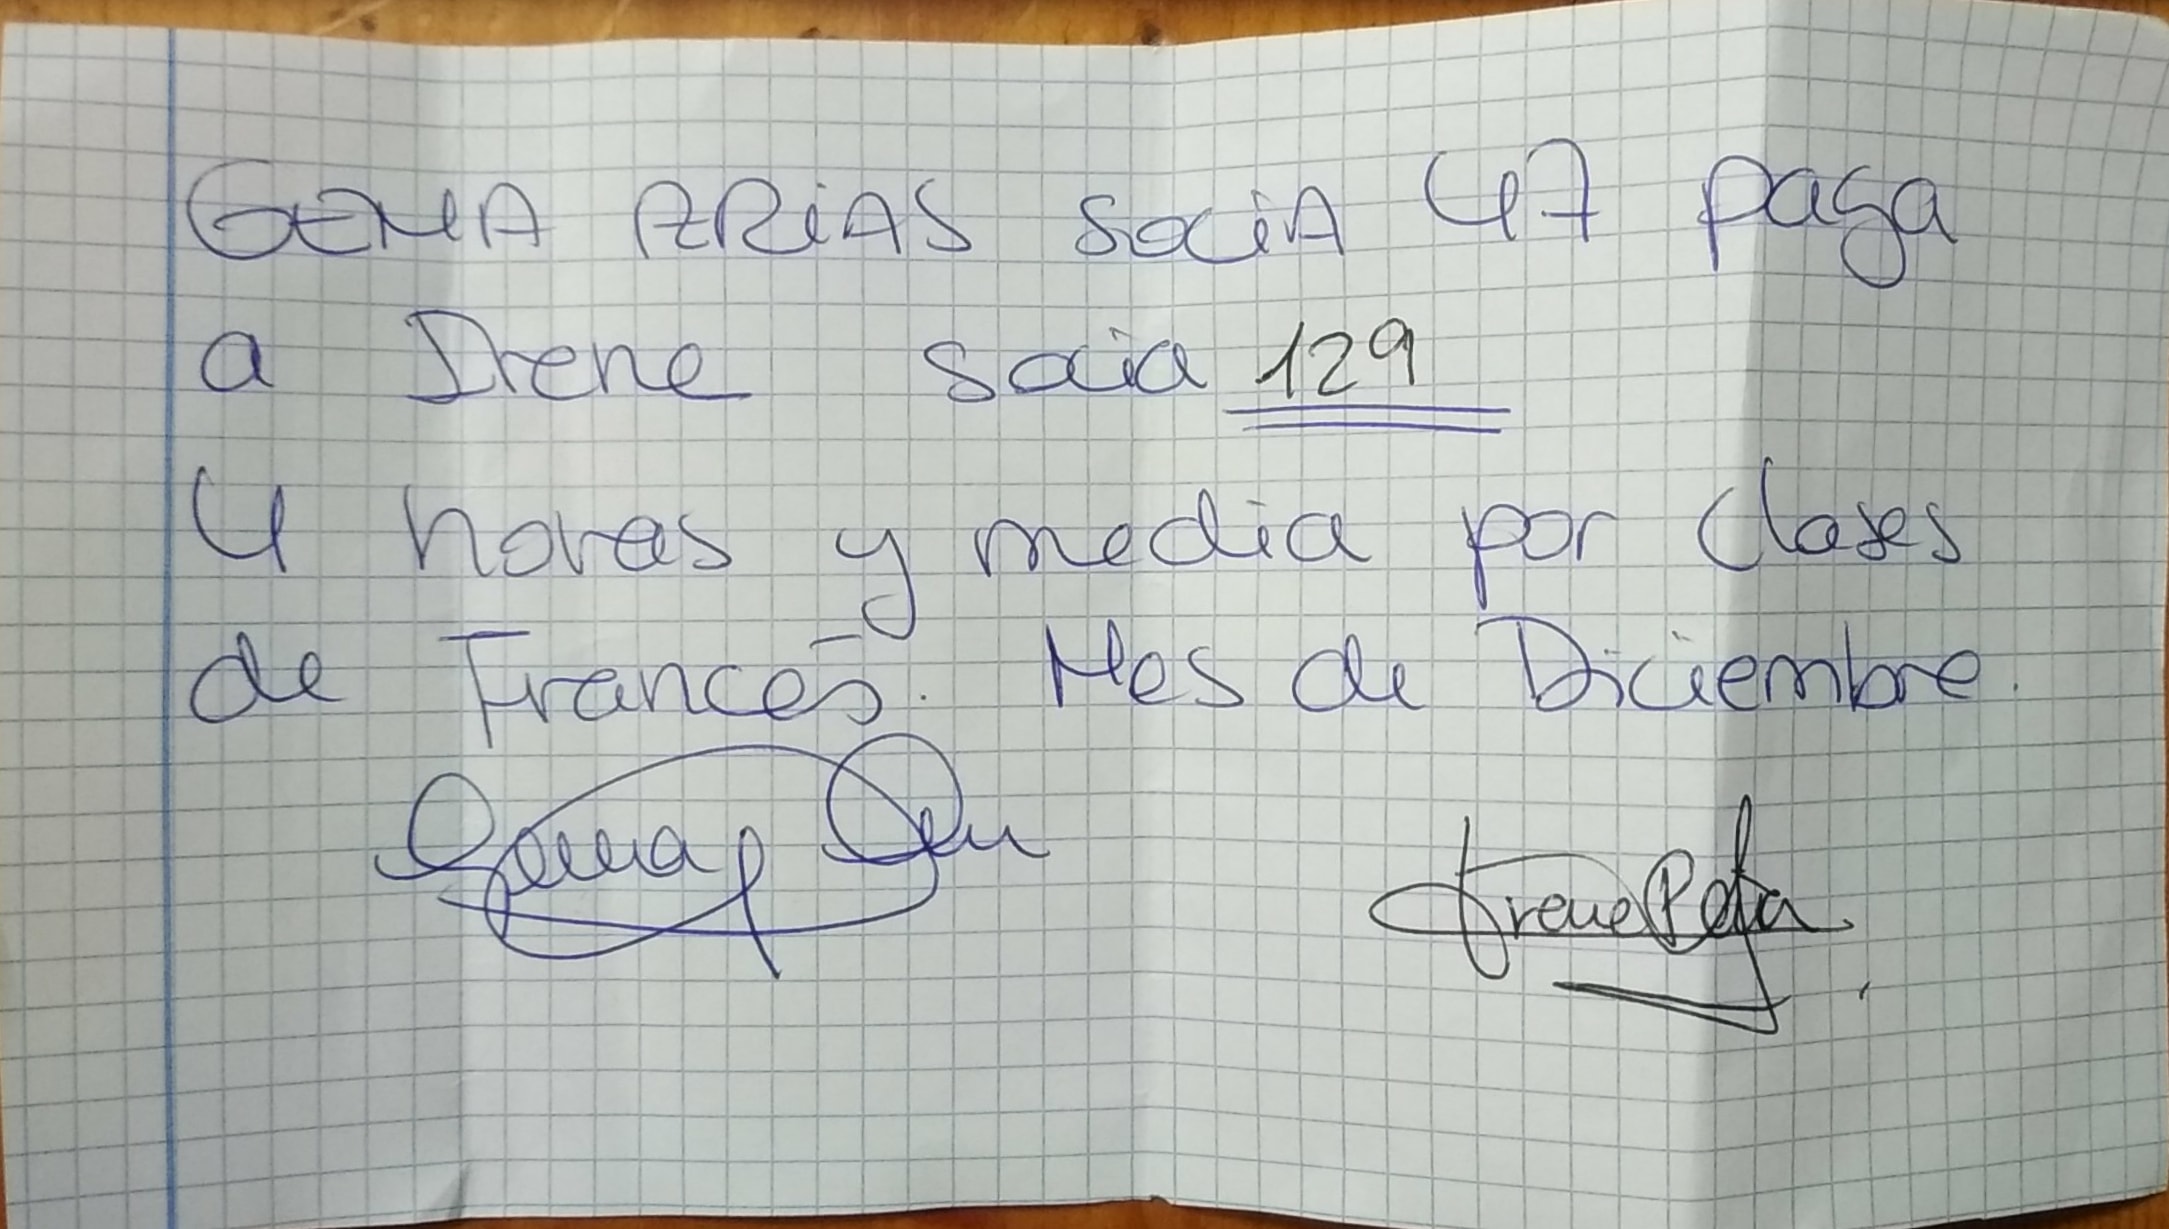 GEMA ARIAS SOCIA 47 paga
a Irene socia 129
4 horas y media por clases
de Francés. Mes de Diciembre.
Gema
Irene